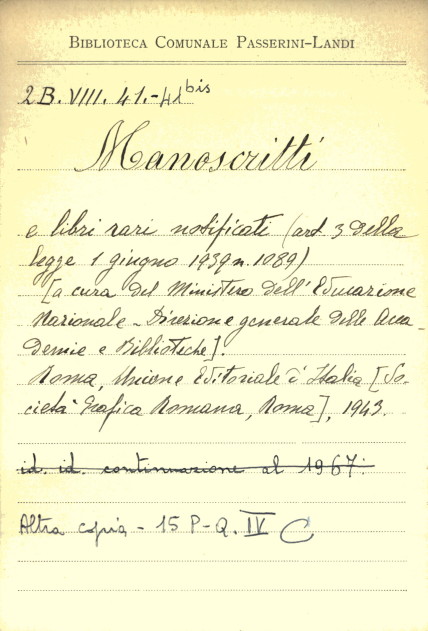 BIBLIOTECA COMUNALE PASSERINI-LANDI
2B. VIII. 41.-41bis
Manoscritti
e libri rari notificati (art. 3 della
legge 1 giugno 1939 n. 1089)
[a cura del Ministero dell'Educazione
Nazionale - Direzione generale delle Acca-
demie e Biblioteche].
Roma, Unione Editoriale d'Italia [So-
cietà Grafica Romana, Roma], 1943.
id. id. continuazione al 1967.
Altra copia - 15 P-Q. IV C